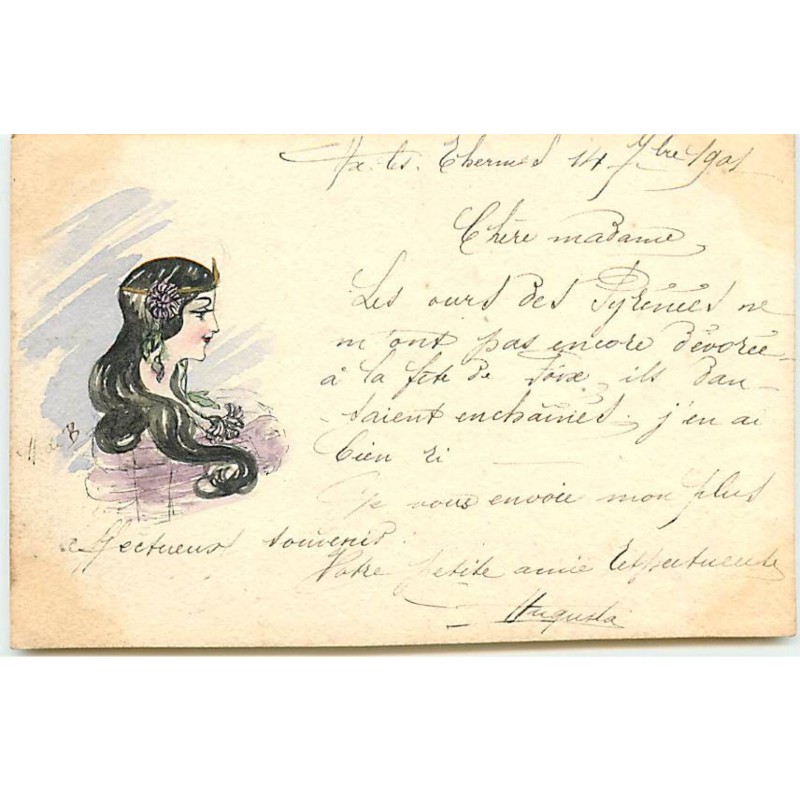 Ax. les. Thermes 14 7bre 1901
Chère madame,
Les ours des Pyrénées ne
m'ont pas encore dévorée
à la fête de Foix, ils dan-
saient enchainés, j'en ai
bien ri
Je vous envoie mon plus
affectueux souvenir.
Votre petite amie respectueuse
Augusta